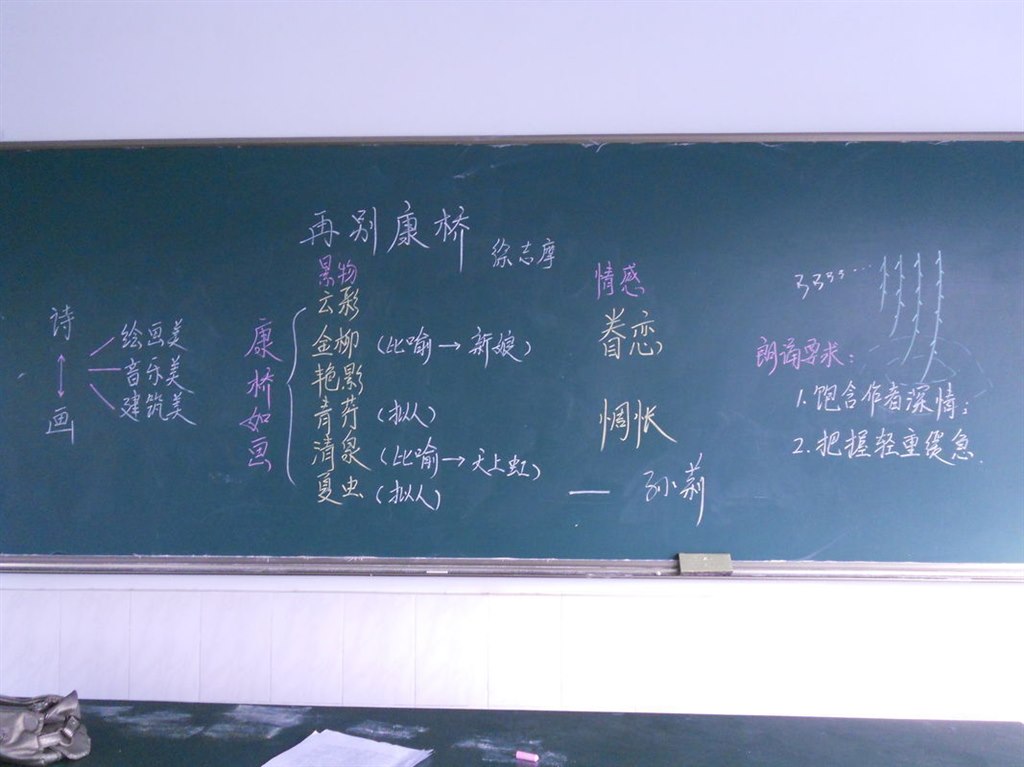 再别康桥
徐志摩
诗
画
绘画美
音乐美
建筑美
康桥如画
景物
云彩
金柳（比喻→新娘）
艳影
青荇（拟人）
清泉（比喻→天上虹）
夏虫（拟人）
情感
眷恋
惆怅
— 孙莉
朗诵要求：
1.饱含作者深情；
2.把握轻重缓急.